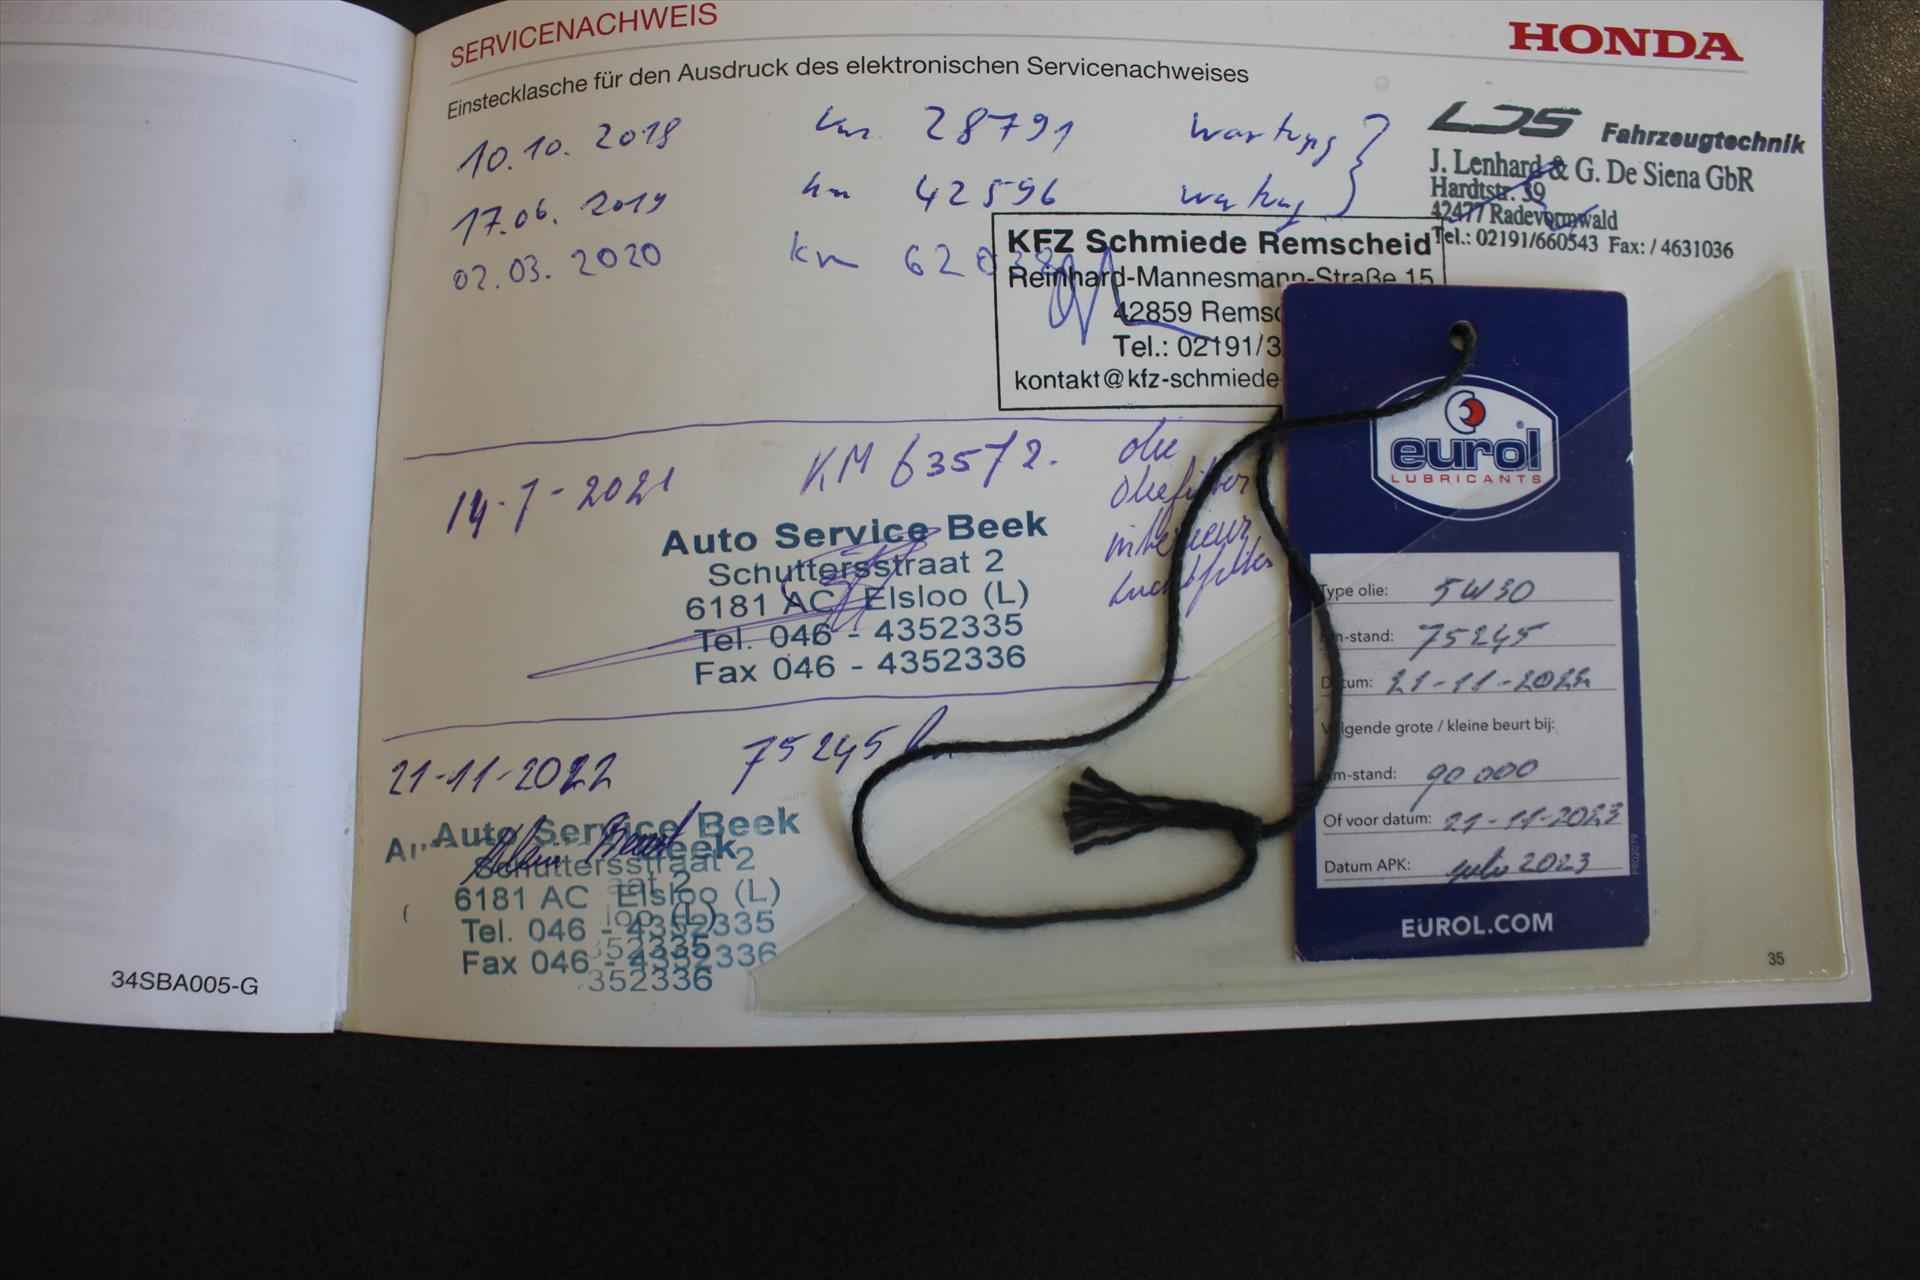 SERVICENACHWEIS
HONDA
Einstecklasche für den Ausdruck des elektronischen Servicenachweises
10.10.2018 km 28791 Wartung
17.06.2019 km 42596 Wartung
02.03.2020 km 620
LDS Fahrzeugtechnik
J. Lenhard & G. De Siena GbR
Hardtstr. 39
42477 Radevormwald
Tel.: 02191/660543 Fax: / 4631036
KFZ Schmiede Remscheid
Reinhard-Mannesmann-Straße 15
42859 Rems
Tel.: 02191/3
kontakt@kfz-schmiede
14-7-2021 KM 63572. olie
oliefilter
interieur
luchtfilter
Auto Service Beek
Schuttersstraat 2
6181 AC Elsloo (L)
Tel. 046 - 4352335
Fax 046 - 4352336
21-11-2022 75245
Auto Service Beek
Schuttersstraat 2
6181 AC Elsloo (L)
Tel. 046 - 4352335
Fax 046 - 4352336
eurol
LUBRICANTS
Type olie: 5W30
m-stand: 75245
Datum: 21-11-2022
Volgende grote / kleine beurt bij:
m-stand: 90000
Of voor datum: 21-11-2023
Datum APK: julu 2023
EUROL.COM
34SBA005-G
35